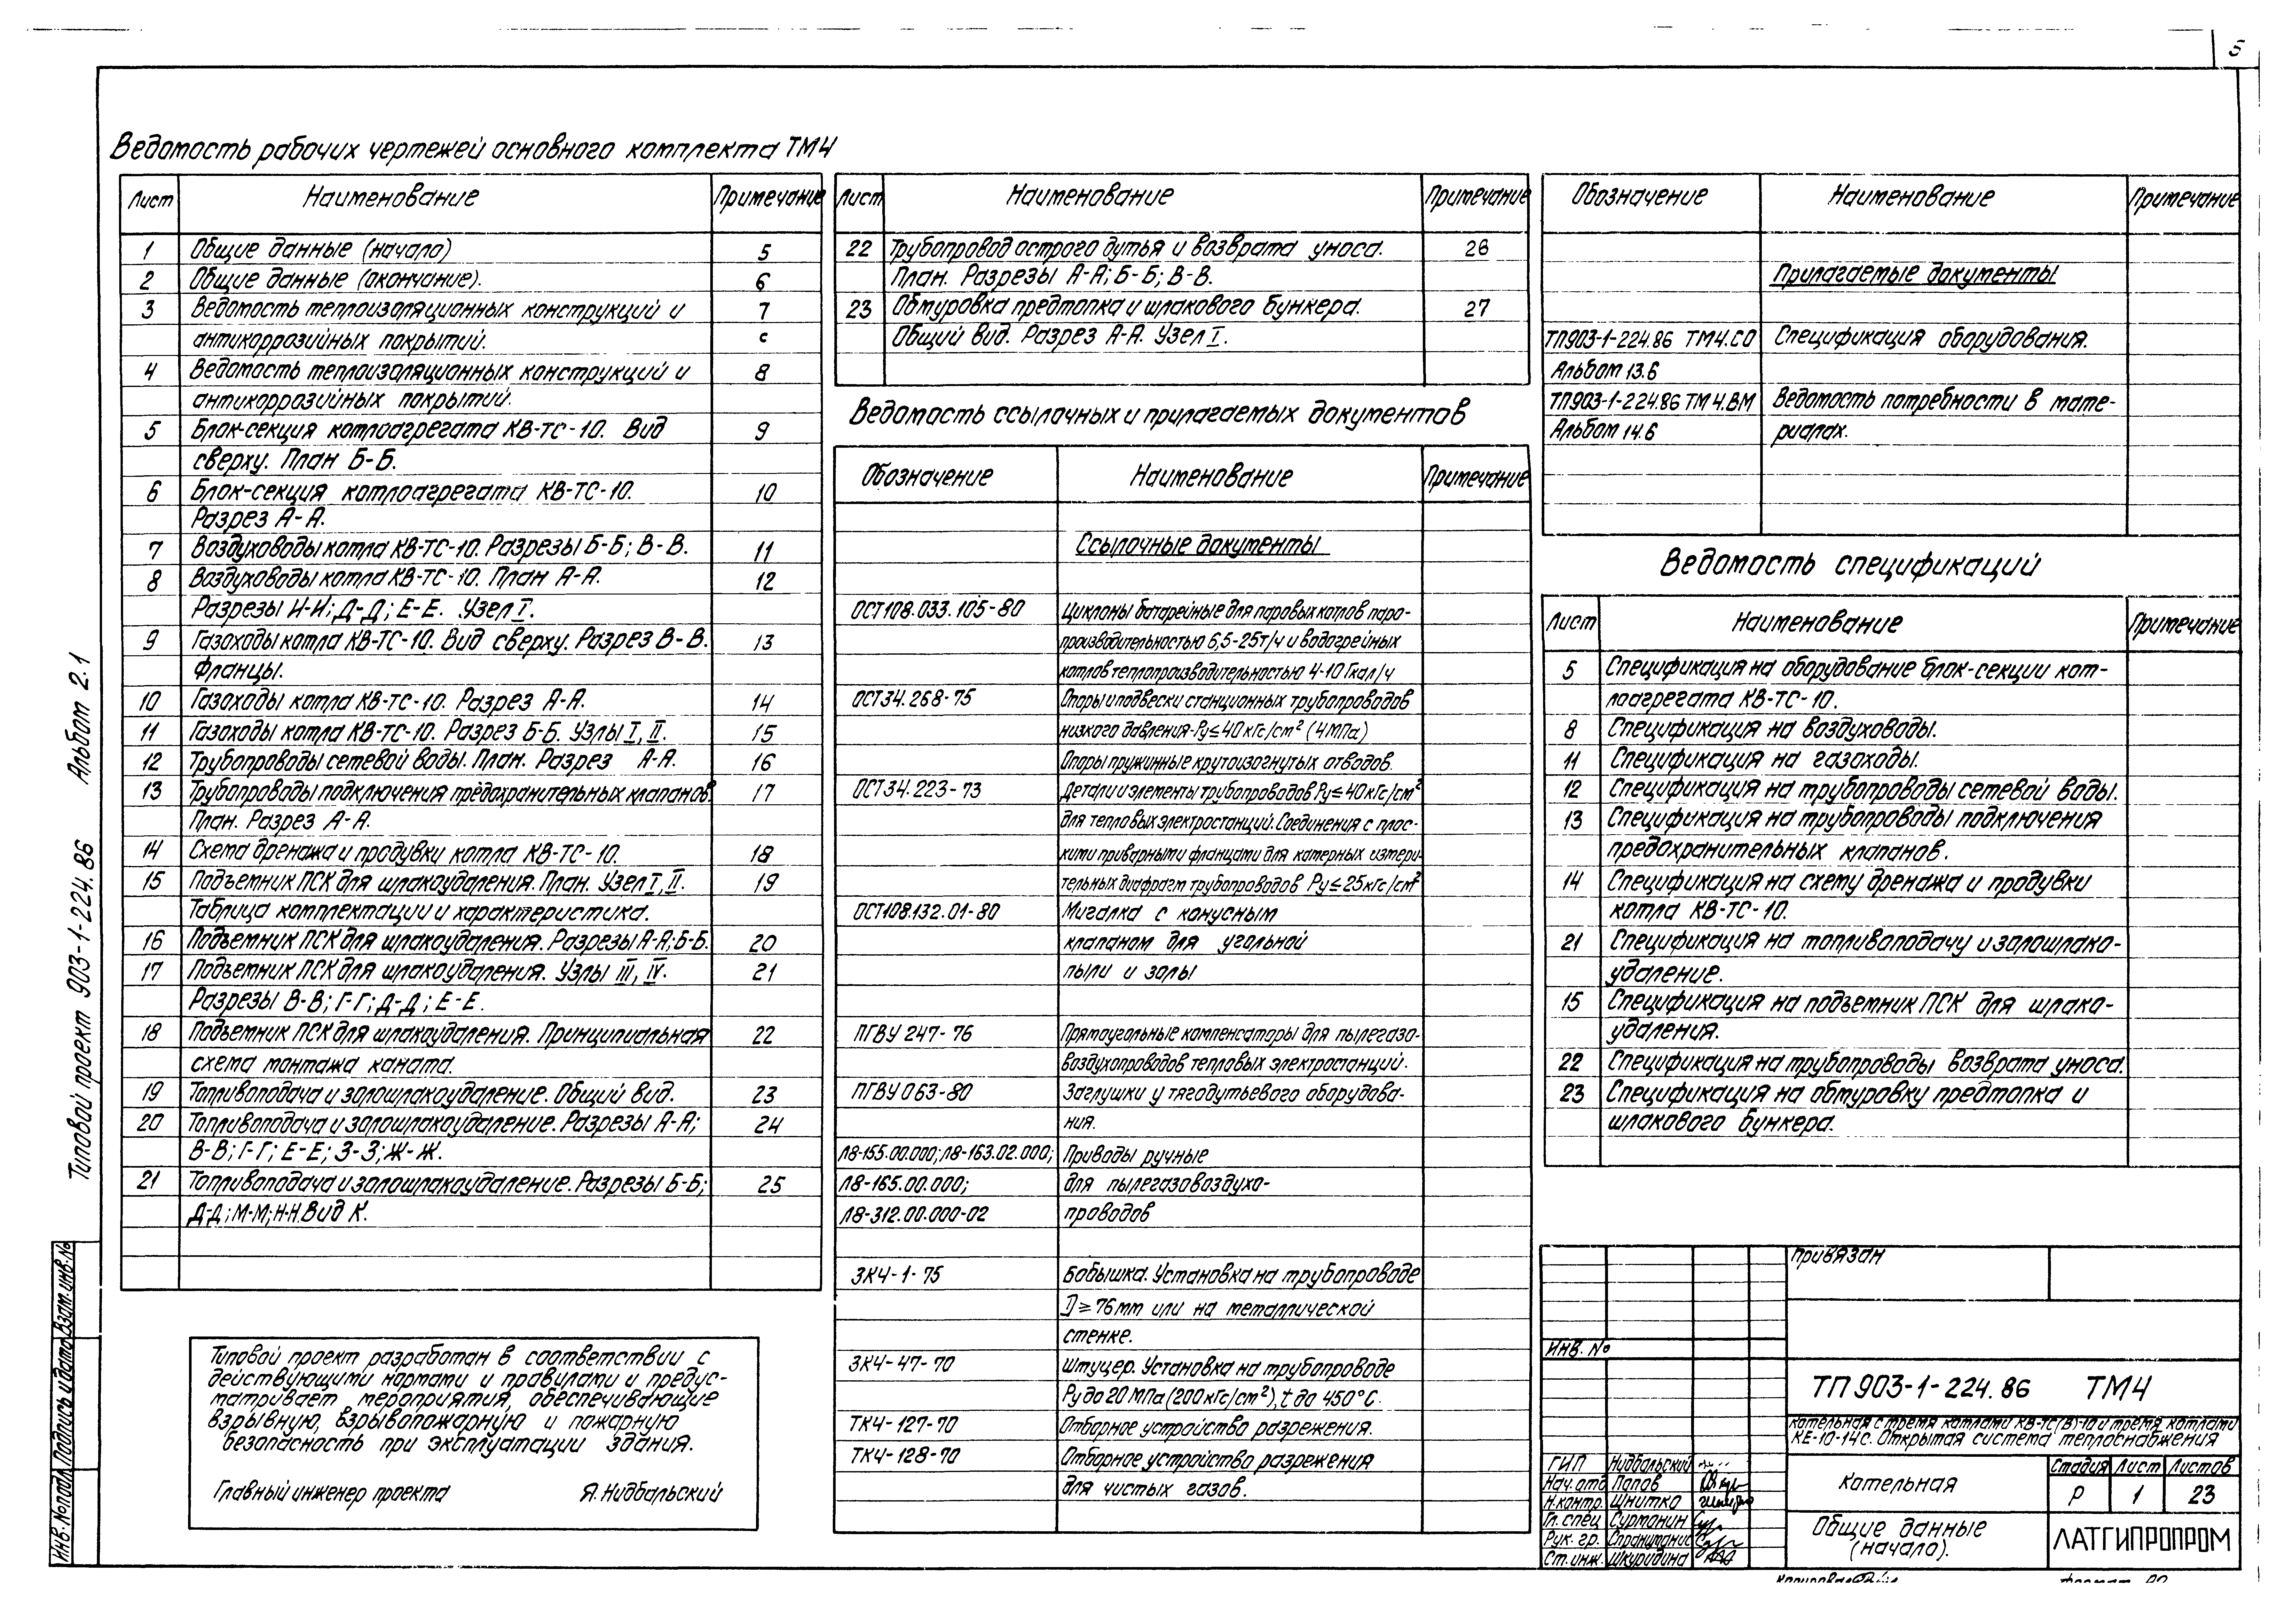 5
Ведомость рабочих чертежей основного комплекта ТМ4
Лист Наименование Примечание
1 Общие данные (начало) 5
2 Общие данные (окончание). 6
3 Ведомость теплоизоляционных конструкций и 7
антикоррозийных покрытий. с
4 Ведомость теплоизоляционных конструкций и 8
антикоррозийных покрытий.
5 Блок-секция котлоагрегата КВ-ТС-10. Вид 9
сверху. План Б-Б.
6 Блок-секция котлоагрегата КВ-ТС-10. 10
Разрез А-А.
7 Воздуховоды котла КВ-ТС-10. Разрезы Б-Б; В-В. 11
8 Воздуховоды котла КВ-ТС-10. План А-А. 12
Разрезы И-И; Д-Д; Е-Е. Узел I.
9 Газоходы котла КВ-ТС-10. Вид сверху. Разрез В-В. 13
Фланцы.
10 Газоходы котла КВ-ТС-10. Разрез А-А. 14
11 Газоходы котла КВ-ТС-10. Разрез Б-Б. Узлы I, II. 15
12 Трубопроводы сетевой воды. План. Разрез А-А. 16
13 Трубопроводы подключения предохранительных клапанов. 17
План. Разрез А-А.
14 Схема дренажа и продувки котла КВ-ТС-10. 18
15 Подъемник ПСК для шлакоудаления. План. Узел I, II. 19
Таблица комплектации и характеристика.
16 Подъемник ПСК для шлакоудаления. Разрезы А-А; Б-Б. 20
17 Подъемник ПСК для шлакоудаления. Узлы III, IV. 21
Разрезы В-В; Г-Г; Д-Д; Е-Е.
18 Подъемник ПСК для шлакоудаления. Принципиальная 22
схема монтажа каната.
19 Топливоподача и золошлакоудаление. Общий вид. 23
20 Топливоподача и золошлакоудаление. Разрезы А-А; 24
В-В; Г-Г; Е-Е; З-З; Ж-Ж.
21 Топливоподача и золошлакоудаление. Разрезы Б-Б; 25
Д-Д; М-М; Н-Н. Вид К.
Типовой проект разработан в соответствии с
действующими нормами и правилами и предус-
матривает мероприятия, обеспечивающие
взрывную, взрывопожарную и пожарную
безопасность при эксплуатации здания.
Главный инженер проекта Я. Нидбальский
Лист Наименование Примечание
22 Трубопровод острого дутья и возврата уноса. 26
План. Разрезы А-А; Б-Б; В-В.
23 Обмуровка предтопка и шлакового бункера. 27
Общий вид. Разрез А-А. Узел I.
Ведомость ссылочных и прилагаемых документов
Обозначение Наименование Примечание
Ссылочные документы
ОСТ108.033.105-80 Циклоны батарейные для паровых котлов паро-
производительностью 6,5-25т/ч и водогрейных
котлов теплопроизводительностью 4-10 Гкал/ч
ОСТ34.268-75 Опоры и подвески станционных трубопроводов
низкого давления-Ру≤40 кгс/см² (4МПа)
Опоры пружинные крутоизогнутых отводов.
ОСТ34.223-73 Детали и элементы трубопроводов Ру≤40кгс/см²
для тепловых электростанций. Соединения с плос-
кими приварными фланцами для камерных измери-
тельных диафрагм трубопроводов Ру≤25кгс/см²
ОСТ108.132.01-80 Мигалка с конусным
клапаном для угольной
пыли и золы
ПГВУ 247-76 Прямоугольные компенсаторы для пылегазо-
воздухопроводов тепловых электростанций.
ПГВУ 063-80 Заглушки у тягодутьевого оборудова-
ния.
Л8-155.00.000; Л8-163.02.000; Приводы ручные
Л8-165.00.000; для пылегазовоздухо-
Л8-312.00.000-02 проводов
ЗК4-1-75 Бобышка. Установка на трубопроводе
D≥76мм или на металлической
стенке.
ЗК4-47-70 Штуцер. Установка на трубопроводе
Ру до 20 МПа (200кгс/см²), t до 450°С.
ТК4-127-70 Отборное устройство разрежения.
ТК4-128-70 Отборное устройство разрежения
для чистых газов.
Обозначение Наименование Примечание
Прилагаемые документы
ТП903-1-224.86 ТМ4.СО Спецификация оборудования.
Альбом 13.6
ТП903-1-224.86 ТМ4.ВМ Ведомость потребности в мате-
Альбом 14.6 риалах.
Ведомость спецификаций
Лист Наименование Примечание
5 Спецификация на оборудование блок-секции кот-
лоагрегата КВ-ТС-10.
8 Спецификация на воздуховоды.
11 Спецификация на газоходы.
12 Спецификация на трубопроводы сетевой воды.
13 Спецификация на трубопроводы подключения
предохранительных клапанов.
14 Спецификация на схему дренажа и продувки
котла КВ-ТС-10.
21 Спецификация на топливоподачу и золошлако-
удаление.
15 Спецификация на подъемник ПСК для шлако-
удаления.
22 Спецификация на трубопроводы возврата уноса.
23 Спецификация на обмуровку предтопка и
шлакового бункера.
Привязан
Инв. №
ТП 903-1-224.86 ТМ4
Котельная с тремя котлами КВ-ТС(В)-10 и тремя котлами
КЕ-10-14с. Открытая система теплоснабжения
ГИП Нидбальский
Нач. отд Попов
Н.контр. Шнитко
Гл. спец Суртанин
Рук. гр.
Ст. инж. Шкуридина
Котельная
Стадия Лист Листов
Р 1 23
Общие данные
(начало).
ЛАТГИПРОПРОМ
Типовой проект 903-1-224.86 Альбом 2.1
Инв. № подл. Подпись и дата Взам. инв. №